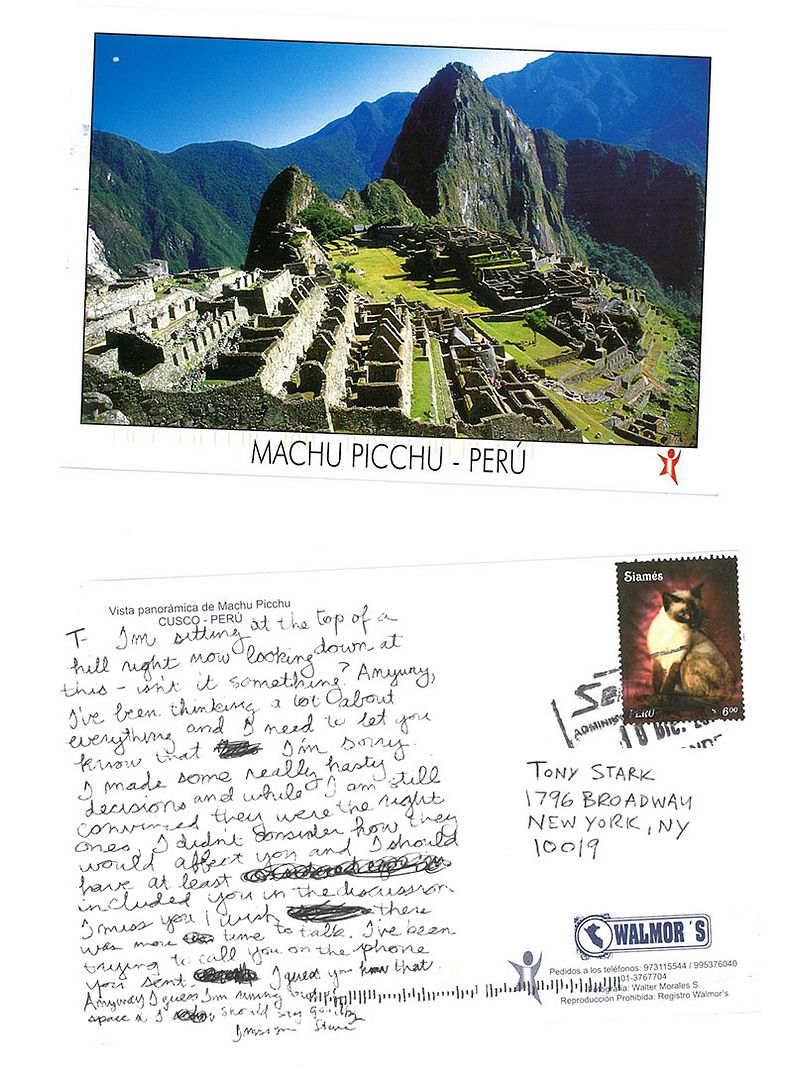 MACHU PICCHU - PERÚ
Vista panorámica de Machu Picchu
CUSCO - PERÚ
T- I'm sitting at the top of a
hill right now looking down at
this - isn't it something? Anyway,
I've been thinking a lot about
everything and I need to let you
know that I'm sorry.
I made some really hasty
decisions and while I am still
convinced they were the right
ones, I didn't consider how they
would affect you and I should
have at least
included you in the discussion.
I miss you I wish there
was more time to talk. I've been
trying to call you on the phone
you sent. I guess you know that.
Anyway I guess I'm running out
space & I should say goodbye
Steve
Siamés
PERÚ 6.00
ADMINIS
10 DIC.
TONY STARK
1796 BROADWAY
NEW YORK, NY
10019
WALMOR´S
Pedidos a los teléfonos: 973115544 / 995376040
01-3767704
Fotografía: Walter Morales S.
Reproducción Prohibida: Registro Walmor's